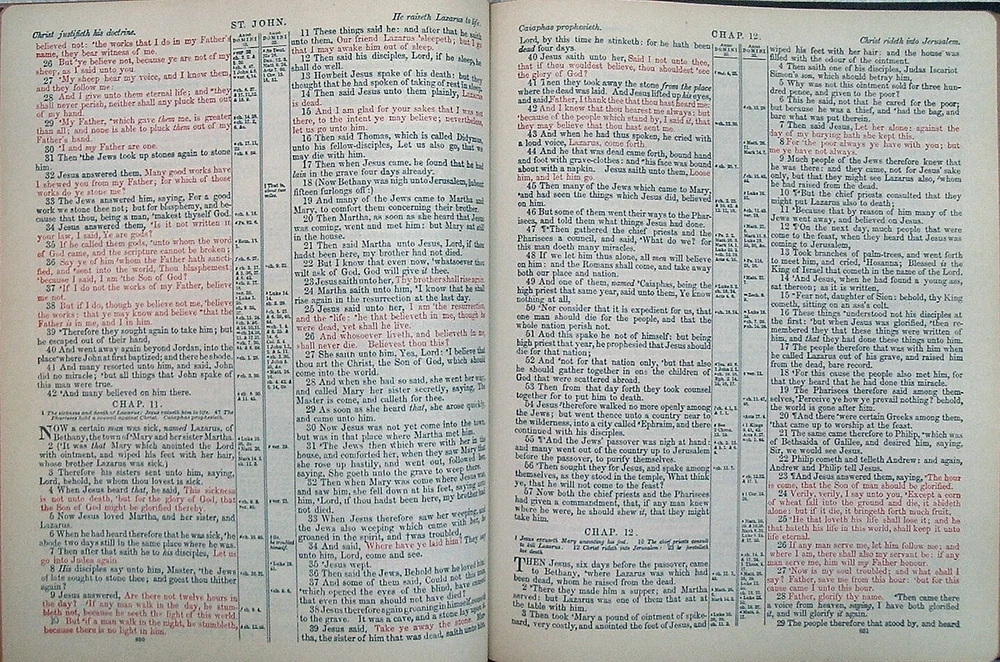 Christ justifieth his doctrine.
ST. JOHN.
He raiseth Lazarus to life.
believed not: the works that I do in my Father's
name, they bear witness of me.
26 But ye believe not, because ye are not of my
sheep, as I said unto you.
27 My sheep hear my voice, and I know them,
and they follow me:
28 And I give unto them eternal life; and they
shall never perish, neither shall any pluck them out
of my hand.
29 My Father, which gave them me, is greater
than all; and none is able to pluck them out of my
Father's hand.
30 I and my Father are one.
31 Then the Jews took up stones again to stone
him.
32 Jesus answered them, Many good works have
I shewed you from my Father; for which of those
works do ye stone me?
33 The Jews answered him, saying, For a good
work we stone thee not; but for blasphemy, and be-
cause that thou, being a man, makest thyself God.
34 Jesus answered them, Is it not written in
your law, I said, Ye are gods?
35 If he called them gods, unto whom the word
of God came, and the scripture cannot be broken;
36 Say ye of him, whom the Father hath sancti-
fied, and sent into the world, Thou blasphemest;
because I said, I am the Son of God?
37 If I do not the works of my Father, believe
me not.
38 But if I do, though ye believe not me, believe
the works: that ye may know and believe that the
Father is in me, and I in him.
39 Therefore they sought again to take him; but
he escaped out of their hand,
40 And went away again beyond Jordan, into the
place where John at first baptized; and there he abode.
41 And many resorted unto him, and said, John
did no miracle: but all things that John spake of
this man were true.
42 And many believed on him there.
CHAP. 11.
1 The sickness and death of Lazarus: Jesus raiseth him to life. 47 The
Pharisees hold a council against Christ. Caiaphas prophesieth.
NOW a certain man was sick, named Lazarus, of
Bethany, the town of Mary and her sister Martha.
2 (It was that Mary which anointed the Lord
with ointment, and wiped his feet with her hair,
whose brother Lazarus was sick.)
3 Therefore his sisters sent unto him, saying,
Lord, behold, he whom thou lovest is sick.
4 When Jesus heard that, he said, This sickness
is not unto death, but for the glory of God, that
the Son of God might be glorified thereby.
5 Now Jesus loved Martha, and her sister, and
Lazarus.
6 When he had heard therefore that he was sick, he
abode two days still in the same place where he was.
7 Then after that saith he to his disciples, Let us
go into Judæa again
8 His disciples say unto him, Master, the Jews
of late sought to stone thee; and goest thou thither
again?
9 Jesus answered, Are there not twelve hours in
the day? If any man walk in the day, he stum-
bleth not, because he seeth the light of this world.
10 But if a man walk in the night, he stumbleth,
because there is no light in him.
11 These things said he: and after that he saith
unto them, Our friend Lazarus sleepeth; but I go
that I may awake him out of sleep.
12 Then said his disciples, Lord, if he sleep, he
shall do well.
13 Howbeit Jesus spake of his death: but they
thought that he had spoken of taking of rest in sleep.
14 Then said Jesus unto them plainly, Lazarus
is dead.
15 And I am glad for your sakes that I was not
there, to the intent ye may believe; nevertheless,
let us go unto him.
16 Then said Thomas, which is called Didymus,
unto his fellow-disciples, Let us also go, that we
may die with him.
17 Then when Jesus came, he found that he had
lain in the grave four days already.
18 (Now Bethany was nigh unto Jerusalem, about
fifteen furlongs off:)
19 And many of the Jews came to Martha and
Mary, to comfort them concerning their brother.
20 Then Martha, as soon as she heard that Jesus
was coming, went and met him: but Mary sat still
in the house.
21 Then said Martha unto Jesus, Lord, if thou
hadst been here, my brother had not died.
22 But I know that even now, whatsoever thou
wilt ask of God, God will give it thee.
23 Jesus saith unto her, Thy brother shall rise again.
24 Martha saith unto him, I know that he shall
rise again in the resurrection at the last day.
25 Jesus said unto her, I am the resurrection,
and the life: he that believeth in me, though he
were dead, yet shall he live:
26 And whosoever liveth, and believeth in me,
shall never die. Believest thou this?
27 She saith unto him, Yea, Lord: I believe that
thou art the Christ, the Son of God, which should
come into the world.
28 And when she had so said, she went her way,
and called Mary her sister secretly, saying, The
Master is come, and calleth for thee.
29 As soon as she heard that, she arose quickly,
and came unto him.
30 Now Jesus was not yet come into the town,
but was in that place where Martha met him.
31 The Jews then which were with her in the
house, and comforted her, when they saw Mary that
she rose up hastily, and went out, followed her,
saying, She goeth unto the grave to weep there.
32 Then when Mary was come where Jesus was,
and saw him, she fell down at his feet, saying unto
him, Lord, if thou hadst been here, my brother had
not died.
33 When Jesus therefore saw her weeping, and
the Jews also weeping which came with her, he
groaned in the spirit, and was troubled,
34 And said, Where have ye laid him? They say
unto him, Lord, come and see.
35 Jesus wept.
36 Then said the Jews, Behold how he loved him!
37 And some of them said, Could not this man,
which opened the eyes of the blind, have caused
that even this man should not have died?
38 Jesus therefore again groaning in himself, cometh
to the grave. It was a cave, and a stone lay upon it.
39 Jesus said, Take ye away the stone. Mar-
tha, the sister of him that was dead, saith unto him,
850
Caiaphas prophesieth.
CHAP. 12.
Christ rideth into Jerusalem.
Lord, by this time he stinketh: for he hath been
dead four days.
40 Jesus saith unto her, Said I not unto thee,
that, if thou wouldest believe, thou shouldest see
the glory of God?
41 Then they took away the stone from the place
where the dead was laid. And Jesus lifted up his eyes,
and said, Father, I thank thee that thou hast heard me:
42 And I knew that thou hearest me always: but
because of the people which stand by, I said it, that
they may believe that thou hast sent me.
43 And when he thus had spoken, he cried with
a loud voice, Lazarus, come forth.
44 And he that was dead came forth, bound hand
and foot with grave-clothes: and his face was bound
about with a napkin. Jesus saith unto them, Loose
him, and let him go.
45 Then many of the Jews which came to Mary,
and had seen the things which Jesus did, believed
on him.
46 But some of them went their ways to the Phar-
isees, and told them what things Jesus had done.
47 ¶ Then gathered the chief priests and the
Pharisees a council, and said, What do we? for
this man doeth many miracles.
48 If we let him thus alone, all men will believe
on him: and the Romans shall come, and take away
both our place and nation.
49 And one of them, named Caiaphas, being the
high priest that same year, said unto them, Ye know
nothing at all,
50 Nor consider that it is expedient for us, that
one man should die for the people, and that the
whole nation perish not.
51 And this spake he not of himself: but being
high priest that year, he prophesied that Jesus should
die for that nation;
52 And not for that nation only, but that also
he should gather together in one the children of
God that were scattered abroad.
53 Then from that day forth they took counsel
together for to put him to death.
54 Jesus therefore walked no more openly among
the Jews; but went thence unto a country near to
the wilderness, into a city called Ephraim, and there
continued with his disciples.
55 ¶ And the Jews' passover was nigh at hand:
and many went out of the country up to Jerusalem
before the passover, to purify themselves.
56 Then sought they for Jesus, and spake among
themselves, as they stood in the temple, What think
ye, that he will not come to the feast?
57 Now both the chief priests and the Pharisees
had given a commandment, that, if any man knew
where he were, he should shew it, that they might
take him.
CHAP. 12.
1 Jesus excuseth Mary anointing his feet. 10 The chief priests consult
to kill Lazarus. 12 Christ rideth into Jerusalem: 23 he foretelleth
his death.
THEN Jesus, six days before the passover, came
to Bethany, where Lazarus was which had
been dead, whom he raised from the dead.
2 There they made him a supper; and Martha
served: but Lazarus was one of them that sat at
the table with him.
3 Then took Mary a pound of ointment of spike-
nard, very costly, and anointed the feet of Jesus, and
wiped his feet with her hair: and the house was
filled with the odour of the ointment.
4 Then saith one of his disciples, Judas Iscariot
Simon's son, which should betray him,
5 Why was not this ointment sold for three hun-
dred pence, and given to the poor?
6 This he said, not that he cared for the poor;
but because he was a thief, and had the bag, and
bare what was put therein.
7 Then said Jesus, Let her alone: against the
day of my burying hath she kept this.
8 For the poor always ye have with you; but
me ye have not always.
9 Much people of the Jews therefore knew that
he was there: and they came, not for Jesus' sake
only, but that they might see Lazarus also, whom
he had raised from the dead.
10 ¶ But the chief priests consulted that they
might put Lazarus also to death;
11 Because that by reason of him many of the
Jews went away, and believed on Jesus.
12 ¶ On the next day, much people that were
come to the feast, when they heard that Jesus was
coming to Jerusalem,
13 Took branches of palm-trees, and went forth
to meet him, and cried, Hosanna; Blessed is the
King of Israel that cometh in the name of the Lord.
14 And Jesus, when he had found a young ass,
sat thereon; as it is written,
15 Fear not, daughter of Sion: behold, thy King
cometh, sitting on an ass's colt.
16 These things understood not his disciples at
the first: but when Jesus was glorified, then re-
membered they that these things were written of
him, and that they had done these things unto him.
17 The people therefore that was with him when
he called Lazarus out of his grave, and raised him
from the dead, bare record.
18 For this cause the people also met him, for
that they heard that he had done this miracle.
19 The Pharisees therefore said among them-
selves, Perceive ye how ye prevail nothing? behold,
the world is gone after him.
20 ¶ And there were certain Greeks among them,
that came up to worship at the feast.
21 The same came therefore to Philip, which was
of Bethsaida of Galilee, and desired him, saying,
Sir, we would see Jesus.
22 Philip cometh and telleth Andrew: and again,
Andrew and Philip tell Jesus.
23 ¶ And Jesus answered them, saying, The hour
is come, that the Son of man should be glorified.
24 Verily, verily, I say unto you, Except a corn
of wheat fall into the ground and die, it abideth
alone: but if it die, it bringeth forth much fruit.
25 He that loveth his life shall lose it; and he
that hateth his life in this world, shall keep it unto
life eternal.
26 If any man serve me, let him follow me; and
where I am, there shall also my servant be: if any
man serve me, him will my Father honour.
27 Now is my soul troubled; and what shall I
say? Father, save me from this hour: but for this
cause came I unto this hour.
28 Father, glorify thy name. Then came there
a voice from heaven, saying, I have both glorified
it, and will glorify it again.
29 The people therefore that stood by, and heard
851